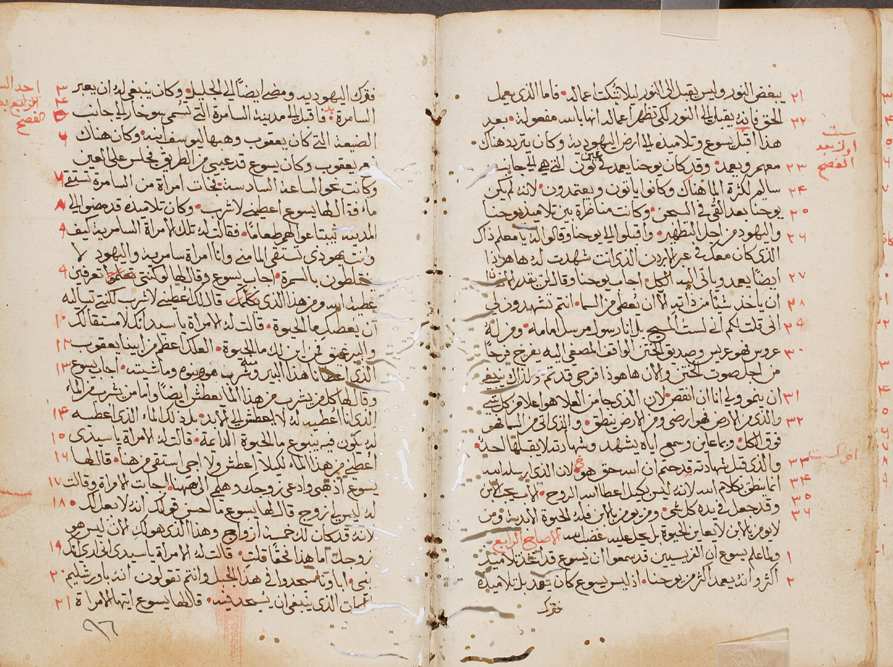 يبغض النور وليس يقبل الى النور ليلا تبكت اعماله فاما الذي يعمل
الحق فانه يقبل الى النور لكي تظهر اعماله انها بالله مفعوله وبعد
هذا اقبل يسوع وتلاميذه الى ارض اليهوديه وكان يتردد هناك
معهم ويعمد وقد كان يوحنا يعمد في عين نون التي هي الى جانب
ساليم لكثرة الما هناك وكانوا ياتون ويعتمدون لانه لم يكن
يوحنا بعد القي في السجن وكانت مناظرة بين تلاميذ يوحنا
واليهود من اجل التطهير واقبلوا الى يوحنا وقالوا له يا معلم ذاك
الذي كان معك في عبر الاردن الذي انت شهدت له ها هوذا
ايضا يعمد وياتي اليه الكل اجاب يوحنا وقال لن يقدر انسان
ان ياخذ شيئا من ذاته الا ان يعطى من السما انتم تشهدون لي
اني قلت لكم اني لست المسيح بل انا رسول مرسل امامه ومن له
عروس فهو عريس وصديق الختن الواقف المصغي اليه يفرح فرحا
من اجل صوت الختن والان ها هوذا فرحي قد تم ولذلك ينبغي
ان ينمو ولي انا ان انقص لان الذي جا من العلا هو اعلا من كل شي
والذي من الارض فهو ارضي ومن الارض ينطق والذي اتى من السما هو
فوق الكل وبما عاين وسمع اياه يشهد وشهادته لا يقبلها احد
والذي قبل شهادته قد ختم ان الله حق هو لان الذي ارسله الله
انما ينطق بكلام الله لانه ليس بكيل اعطا الله الروح الاب يحب الابن
وقد جعل في يده كل شي ومن يومن بالابن فله الحيوة الابدية ومن
لا يومن بالابن لا يعاين الحيوة بل يحل عليه غضب الله الاصحاح الرابع
ولما علم يسوع ان الفريسيين قد سمعوا ان يسوع قد اتخذ تلاميذ
اكثر وانه يعمد اكثر من يوحنا اذ ليس يسوع كان يعمد بل تلاميذه
فترك
فترك اليهوديه ومضى ايضا الى الجليل وكان ينبغي له ان يعبر
السامرة فاقبل الى مدينة السامرة التي تسمى سوخار الى جانب
الضيعة التي كان يعقوب وهبها ليوسف ابنه وكان هناك
يعقوب وكان يسوع قد عيي من الطريق فجلس على العين
وكانت نحو الساعة السادسة فجات امراة من السامرة تستقي
ما فقال لها يسوع اعطيني لاشرب وكان تلاميذه قد مضوا الى
المدينة ليبتاعوا لهم طعاما فقالت له تلك الامراة السامرية كيف
وانت يهودي تستقي الما مني وانا امراة سامرية واليهود لا
يختلطون بالسمرة اجاب يسوع وقال لها لو كنتي تعرفين
عطية الله ومن هذا الذي يكلمك قال لك اعطيني لاشرب لكنتي تساليه
ان يعطيك ما الحيوة قالت له الامراة يا سيد انك لا مستقا لك
والبير عميق فمن اين لك ما الحيوة العلك اعظم من ابينا يعقوب
الذي اعطانا هذا البير ومنه شرب هو وبنوه وماشيته اجاب يسوع
وقال لها كل من يشرب من هذا الما يعطش ايضا واما من يشرب من الما
الذي انا اعطيه له لا يعطش الى الابد بل ذلك الما الذي اعطيه
له يكون فيه ينبوع ما لحيوة الدايمة قالت له الامراة يا سيدي
اعطيني من هذا الما لكيلا اعطش ولا اجي استقي من هنا قال لها
يسوع اذهبي وادعي زوجك وهلمي الى ههنا اجابت الامراة وقالت
له ليس لي زوج قال لها يسوع لقد احسن قولك انه لا بعل لك
لانه قد كان لك خمسة ازواج وهذا الذي هو لك الان ليس هو
زوجك اما هذا فحقا قلتي قالت له الامراة يا سيدي اني ارى انك
نبي اباونا سجدوا في هذا الجبل وانتم تقولون انه باورشليم
المكان الذي ينبغي ان يسجد فيه قال لها يسوع ايتها الامراة